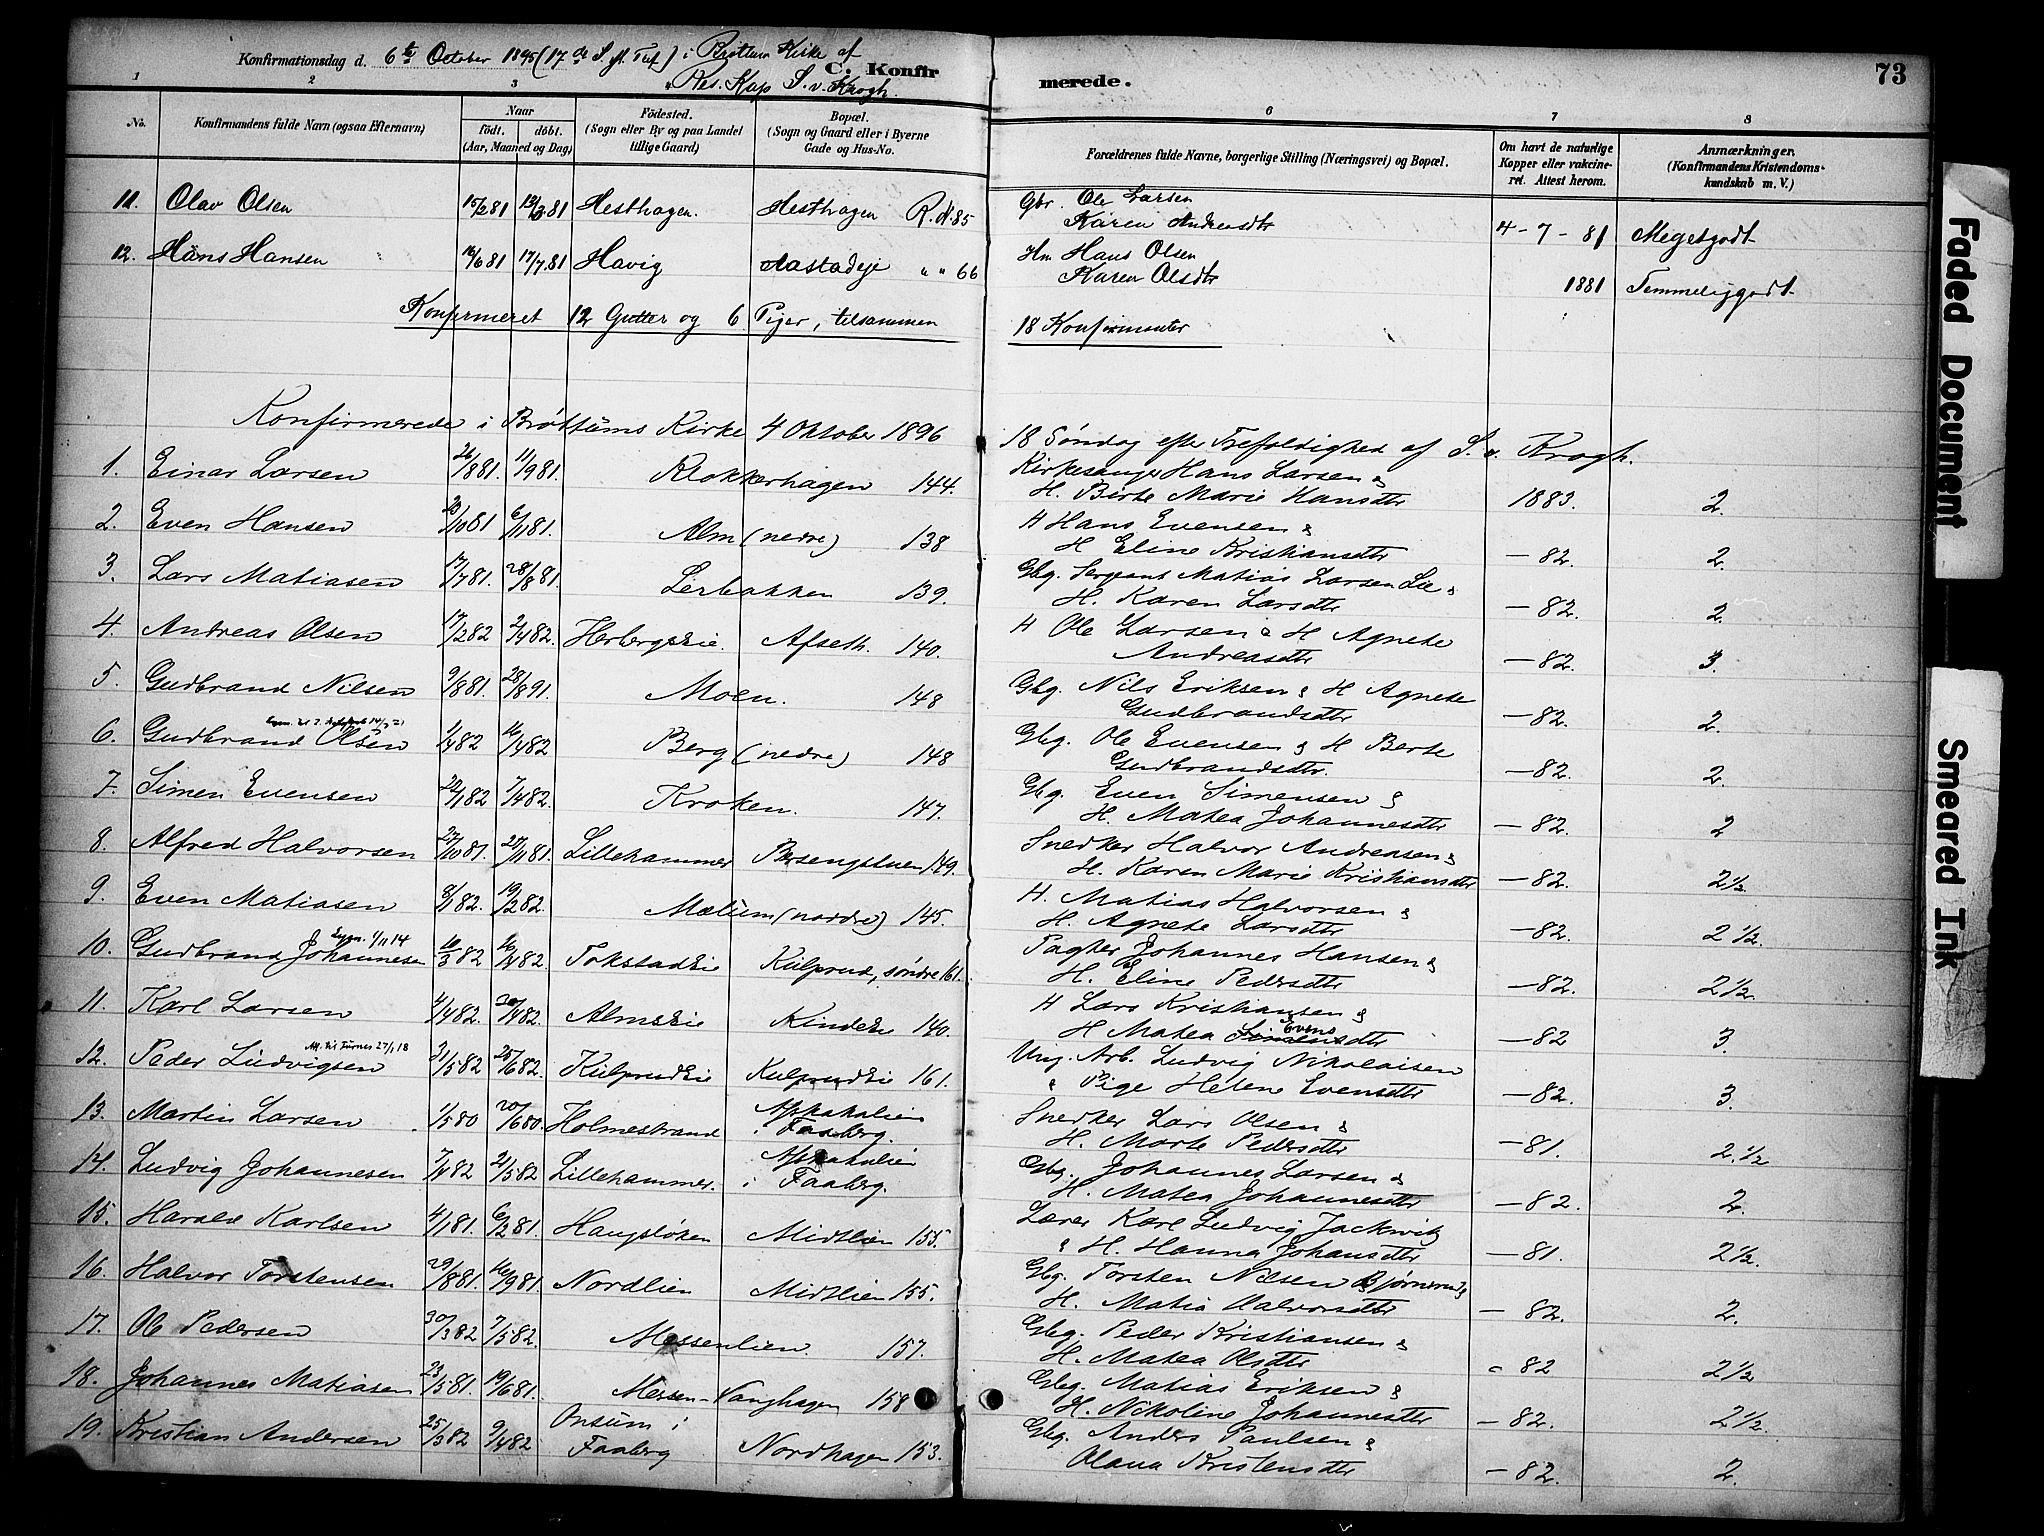 Konfirmationsdag d. 6te October 1895 (17de S. f. Tref.) i Brøttum Kirke af
Res. Kap. S. v. Krogh.
C. Konfirmerede.
73
1 2 3 6 7 8
No. Konfirmandens fulde Navn (ogsaa Efternavn) Naar født. døbt. (Aar, Maaned og Dag) Fødested. (Sogn eller By og paa Landet tillige Gaard) Bopæl. (Sogn og Gaard eller i Byerne Gade og Hus-No. Forældrenes fulde Navne, borgerlige Stilling (Næringsvei) og Bopæl. Om havt de naturlige Kopper eller vakcineret. Attest herom. Anmærkninger. (Konfirmandens Kristendomskundskab m. V.)
11. Olav Olsen 15/2 81 Hesthagen. Hesthagen R. N. 85 Gbr. Ole Larsen
Karen Andreasdtr 4-7-81 Megetgodt
12. Hans Hansen 16/6 81 17/7 81 Havig Aastadeje " " 66 Hm Hans Olsen
Karen Olsdtr 1881 Temmeliggodt
Konfirmeret 12 Gutter og 6 Piger, tilsammen 18 Konfirmenter
Konfirmerede i Brøttums Kirke 4 Oktober 1896 18 Søndag efter Trefoldighed af S. v. Krogh.
1. Einar Larsen 26/8 81. 11/9 81. Klokkerhagen 144. Kirkesanger Hans Larsen &
H. Birte Marie Hansdtr 1883. 2.
2. Even Hansen 10 81 6/11 81. Alm (nedre) 138 H Hans Evensen &
H Eline Kristiansdtr - 82. 2.
3. Lars Matiasen 17/7 81. 28/8 81. Lerbakken 139. Gbg. Sergeant Matias Larsen Lie &
H. Karen Larsdtr - 82. 2.
4. Andreas Olsen 17/2 82 2/4 82. Herbergseie. Afseth. 140. H Ole Larsen & H Agnete
Andreasdtr - 82. 3.
5. Gudbrand Nilsen 9/8 81. 28/8 91. Moen. 148 Gbg. Nils Eriksen & H Agnete
Gudbrandsdtr - 82. 2.
6. Gudbrand Olsen 1/4 82 16/4 82. Berg (nedre) 148 Gbg. Ole Evensen & H Berte
Gudbrandsdtr. - 82. 2.
7. Simen Evensen 22/1 82 7/4 82. Kroken. 147. Gbg. Even Simensen &
H. Matea Johannesdtr - 82. 2
8. Alfred Halvorsen 27/10 81. 27/11 81. Lillehammer Bersengstuen 149. Snedker Halvor Andreasen &
H. Karen Marie Kristiansdtr - 82. 2½
9. Even Matiasen 8/1 82. 19/2 82. Mælum (nordre) 145. H. Matias Halvorsen &
H. Agnete Larsdtr - 82. 2½.
Exm. 1/11 14
10. Gudbrand Johannesen 10/3 82 16/4 82. Tokstadeie Kulprud, søndre 161. Pagter Johannes Hansen &
H. Eline Pedersdtr - 82. 2½.
11. Karl Larsen 4/4 82. 30/4 82. Almseie Kindeeie 140. H Lars Kristiansen &
H Matea Evensdtr - 82 3.
Att. til Furnes 27/1 18
12. Peder Ludvigsen 31/5 82 25/6 82. Kulprudeie Kulprudeie 161. Ung. Arb. Ludvig Nikolaisen
" Pige Helene Evensdtr - 82. 3.
13. Martin Larsen 1/5 80 20/6 80. Holmestrand i Faaberg. Snedker Lars Olsen &
H. Marte Pedersdtr - 81. 2.½
14. Ludvig Johannesen 7/4 82 21/5 82 Lillehammer. i Faaberg. Gbg. Johannes Larsen &
H. Matea Johannesdtr - 82. 2.
15. Harald Karlsen 4/1 81. 6/2 81. Haugsløken Midtlien 155. Lærer Karl Ludvig Jackwitz
& H. Hanna Johansdtr - 81. 2½.
16. Halvor Torstensen 29/8 81. 16/9 81. Nordlien Midtlien 155. Gbg. Torsten Nilsen Bjørnerud &
H. Matia Halvorsdtr - 82. 2.
17. Ole Pedersen 30/3 82 7/5 82. Messenlien. 157. Gbg. Peder Kristiansen &
H. Matea Olsdtr - 82 2½
18. Johannes Matiasen 23/5 81. 19/6 81. Messen-Vanghagen 158 Gbg. Matias Eriksen &
H. Nikoline Johannesdtr - 82. 2½.
19. Kristian Andersen 25/3 82 9/4 82 Onsum i Faaberg Nordhagen 153. Gbg. Anders Paulsen &
Olana Kristensdtr - 82. 2.
Faded Document
Smeared Ink